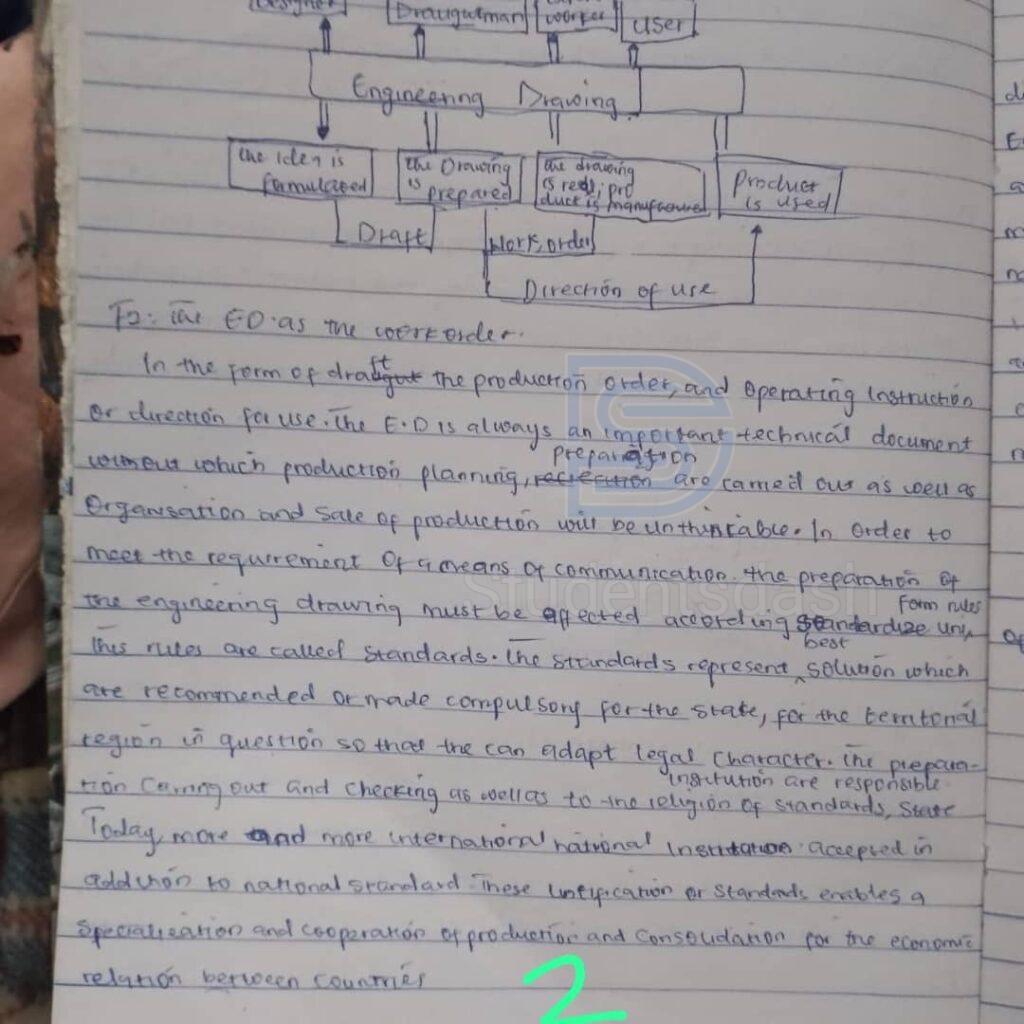 Designer
Draughtman
worker
user
Engineering Drawing
the iden is
formulated
the Drawing
is
prepared
the drawing
is read, pro
duct is manufactured
Product
is used
Draft
Work, order
Direction of use
The E.D. as the work order.
In the form of draft the production order, and operating instruction
or direction for use. The E.D is always an important technical document
without which production planning, preparation are carried out as well as
Organisation and sale of production will be unthinkable. In order to
meet the requirement of a means of communication. the preparation of
the engineering drawing must be affected according standardize uni
form rules
This rules are called standards. The standards represent best solution which
are recommended or made compulsory for the state, for the territorial
region in question so that the can adapt legal character. The prepara-
tion carring out and checking as well as to the religion of standards, State
institution are responsible
Today, more and more international national institution accepted in
addition to national standard. These unification or standards enables a
specialisation and cooperation of production and consolidation for the economic
relation between countries
2
Studentsdash